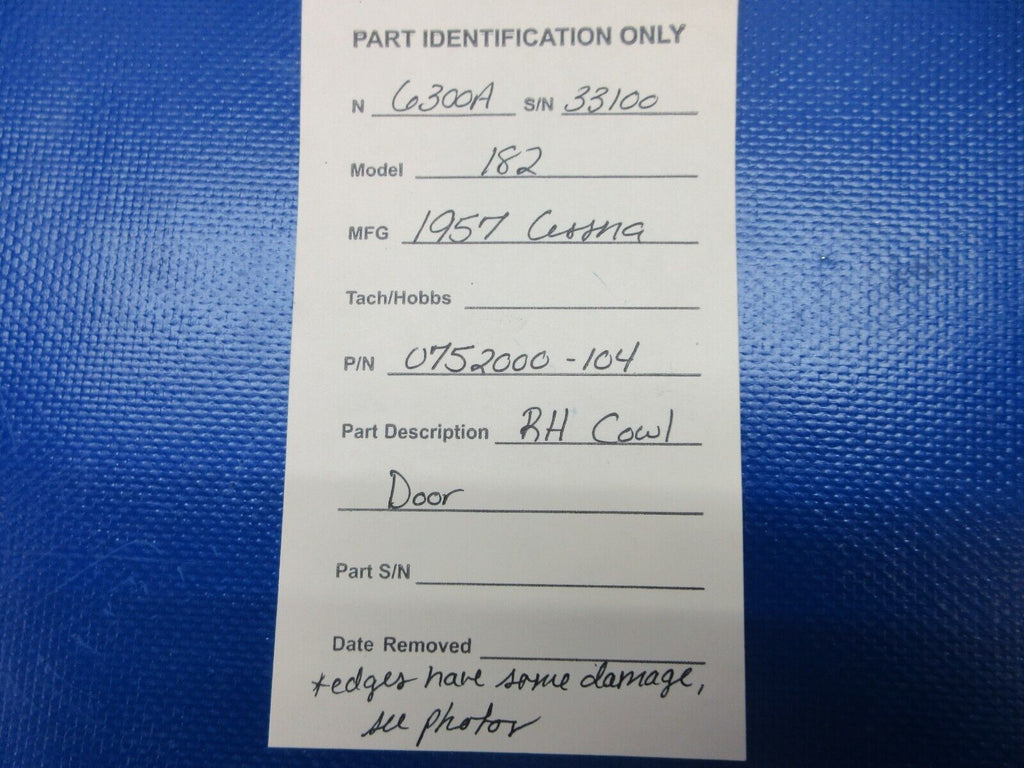 PART IDENTIFICATION ONLY
N 6300A S/N 33100
Model 182
MFG 1957 Cessna
Tach/Hobbs
P/N 0752000-104
Part Description RH Cowl
Door
Part S/N
Date Removed
*edges have some damage,
see photos